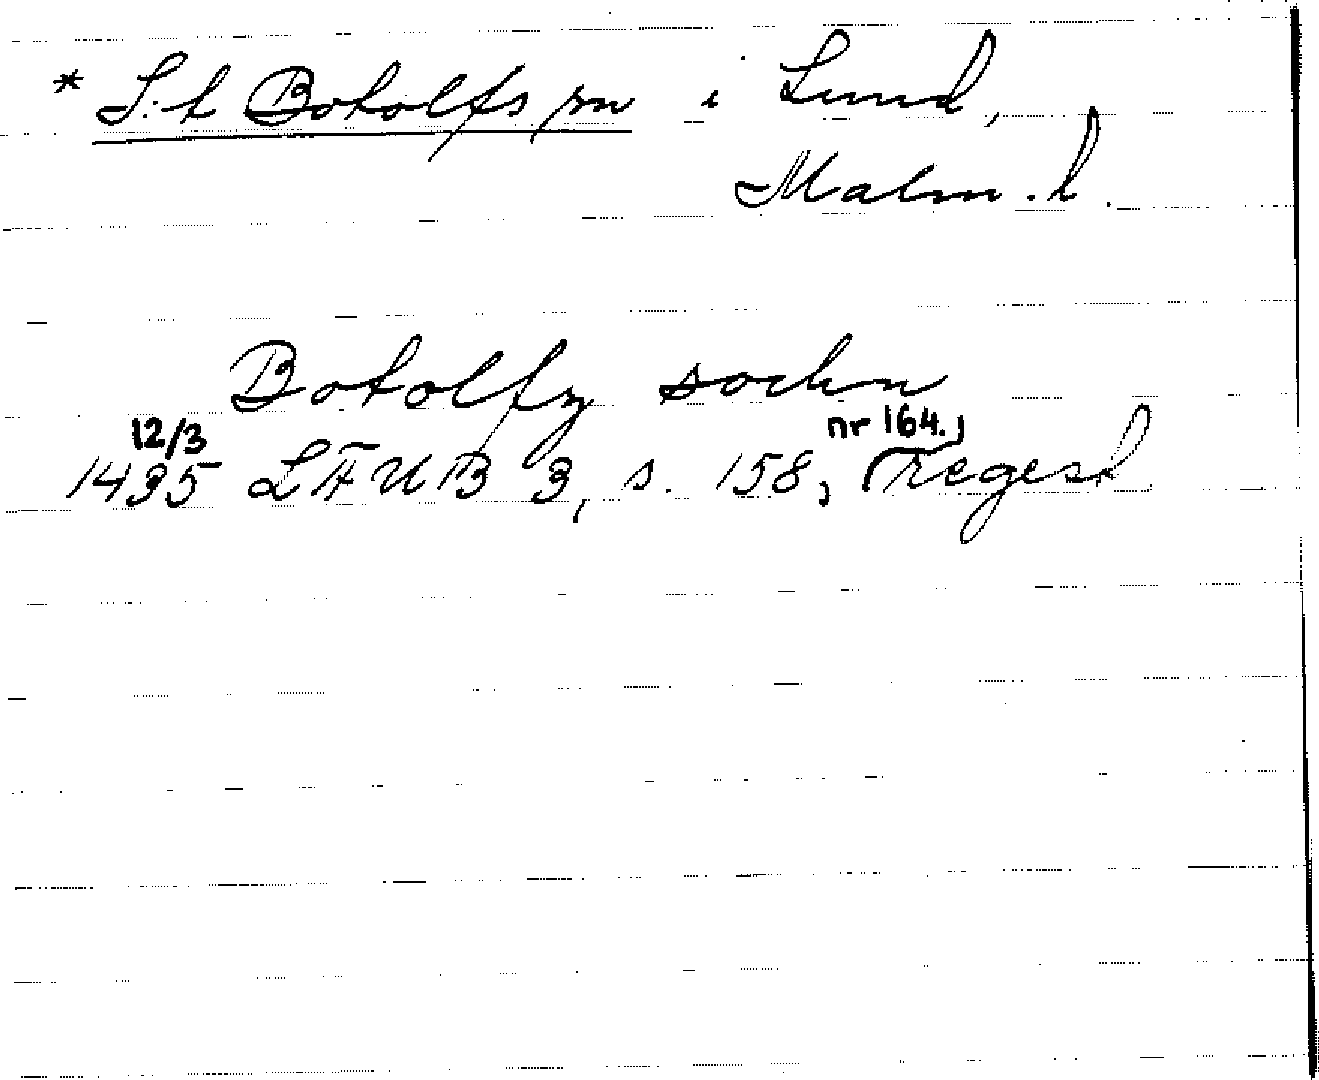 * S:t Botolfs sn i Lund,
Malm. l.
Botolfz sochn
12/3 nr 164.,
1435 LÄUB 3, s. 158, regest